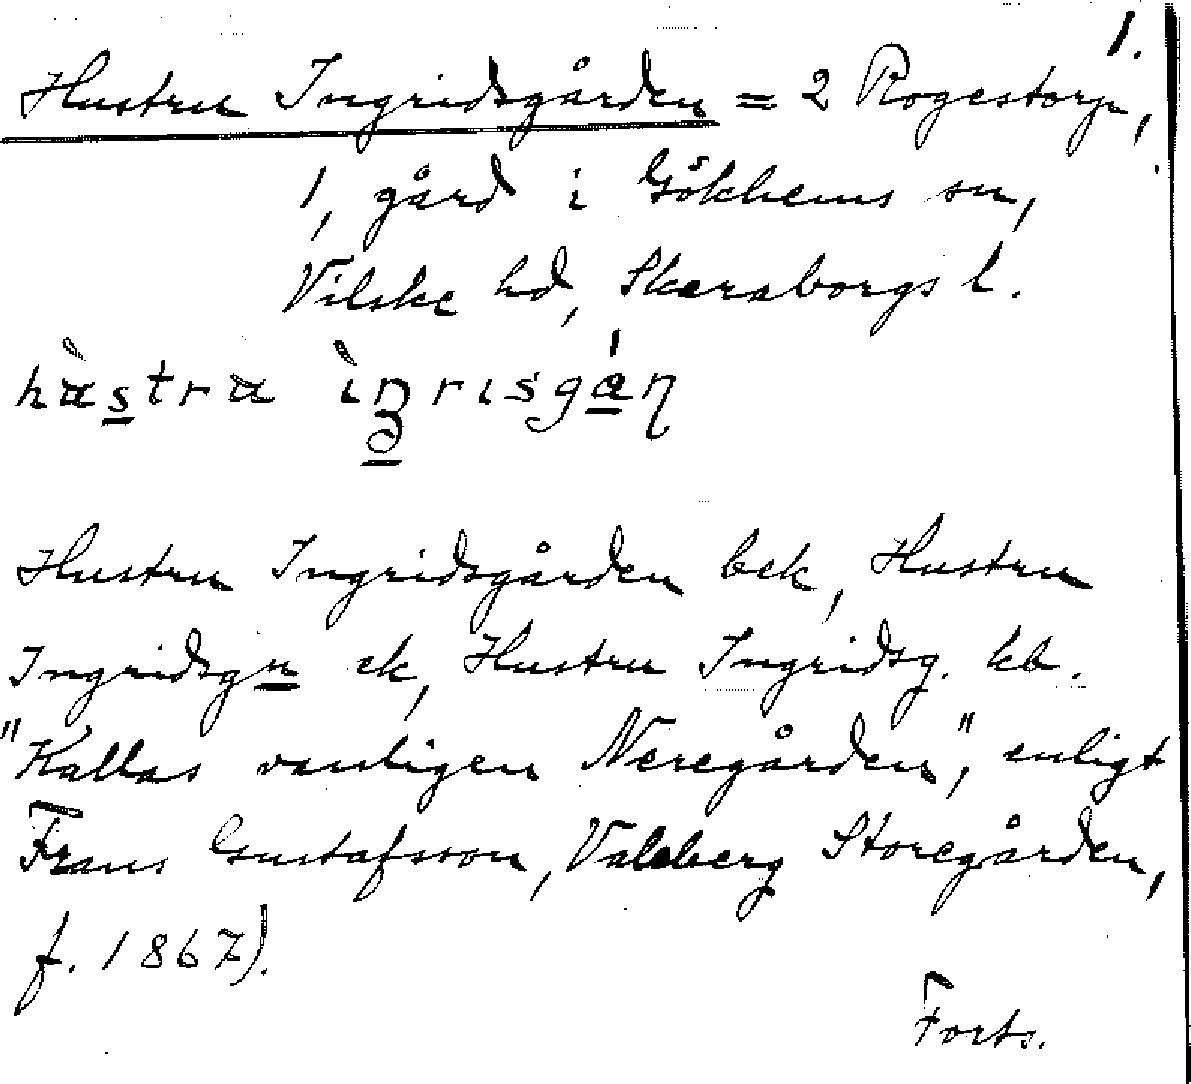 1.
Hustru Ingridsgården = 2 Rogestorp,
1, gård i Gökhems sn,
Vilske hd, Skaraborgs l.
hàstra ìŋrisgán
Hustru Ingridsgården bek, Hustru
Ingridsgn ek, Hustru Ingridsg. kb.
"Kallas vanligen Neregården", enligt
Frans Gustafsson, Valeberg Storegården,
f. 1867).
Forts.